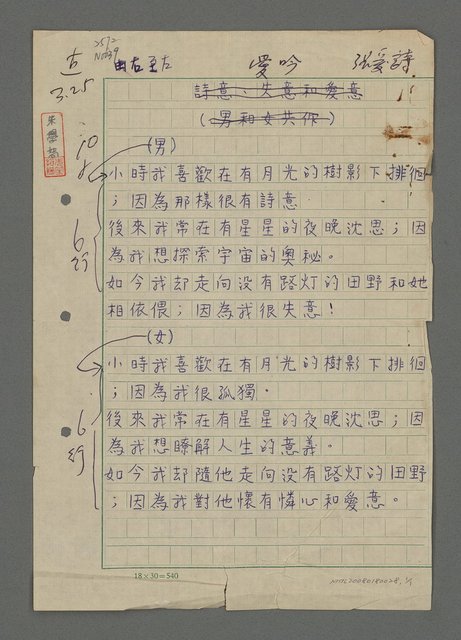 由右至左
愛吟
張愛詩
3.25
詩意、失意和愛意
(男和女共作)
(男)
小時我喜歡在有月光的樹影下排徊
;因為那樣很有詩意.
後來我常在有星星的夜晚沈思;因
為我想探索宇宙的奧秘。
如今我却走向没有路灯的田野和她
相依偎;因為我很失意!
6行
(女)
小時我喜歡在有月光的樹影下排徊
;因為我很孤獨.
後來我常在有星星的夜晚沈思;因
為我想瞭解人生的意義。
如今我却隨他走向没有路灯的田野
;因為我對他懷有憐心和愛意。
6行
18×30=540